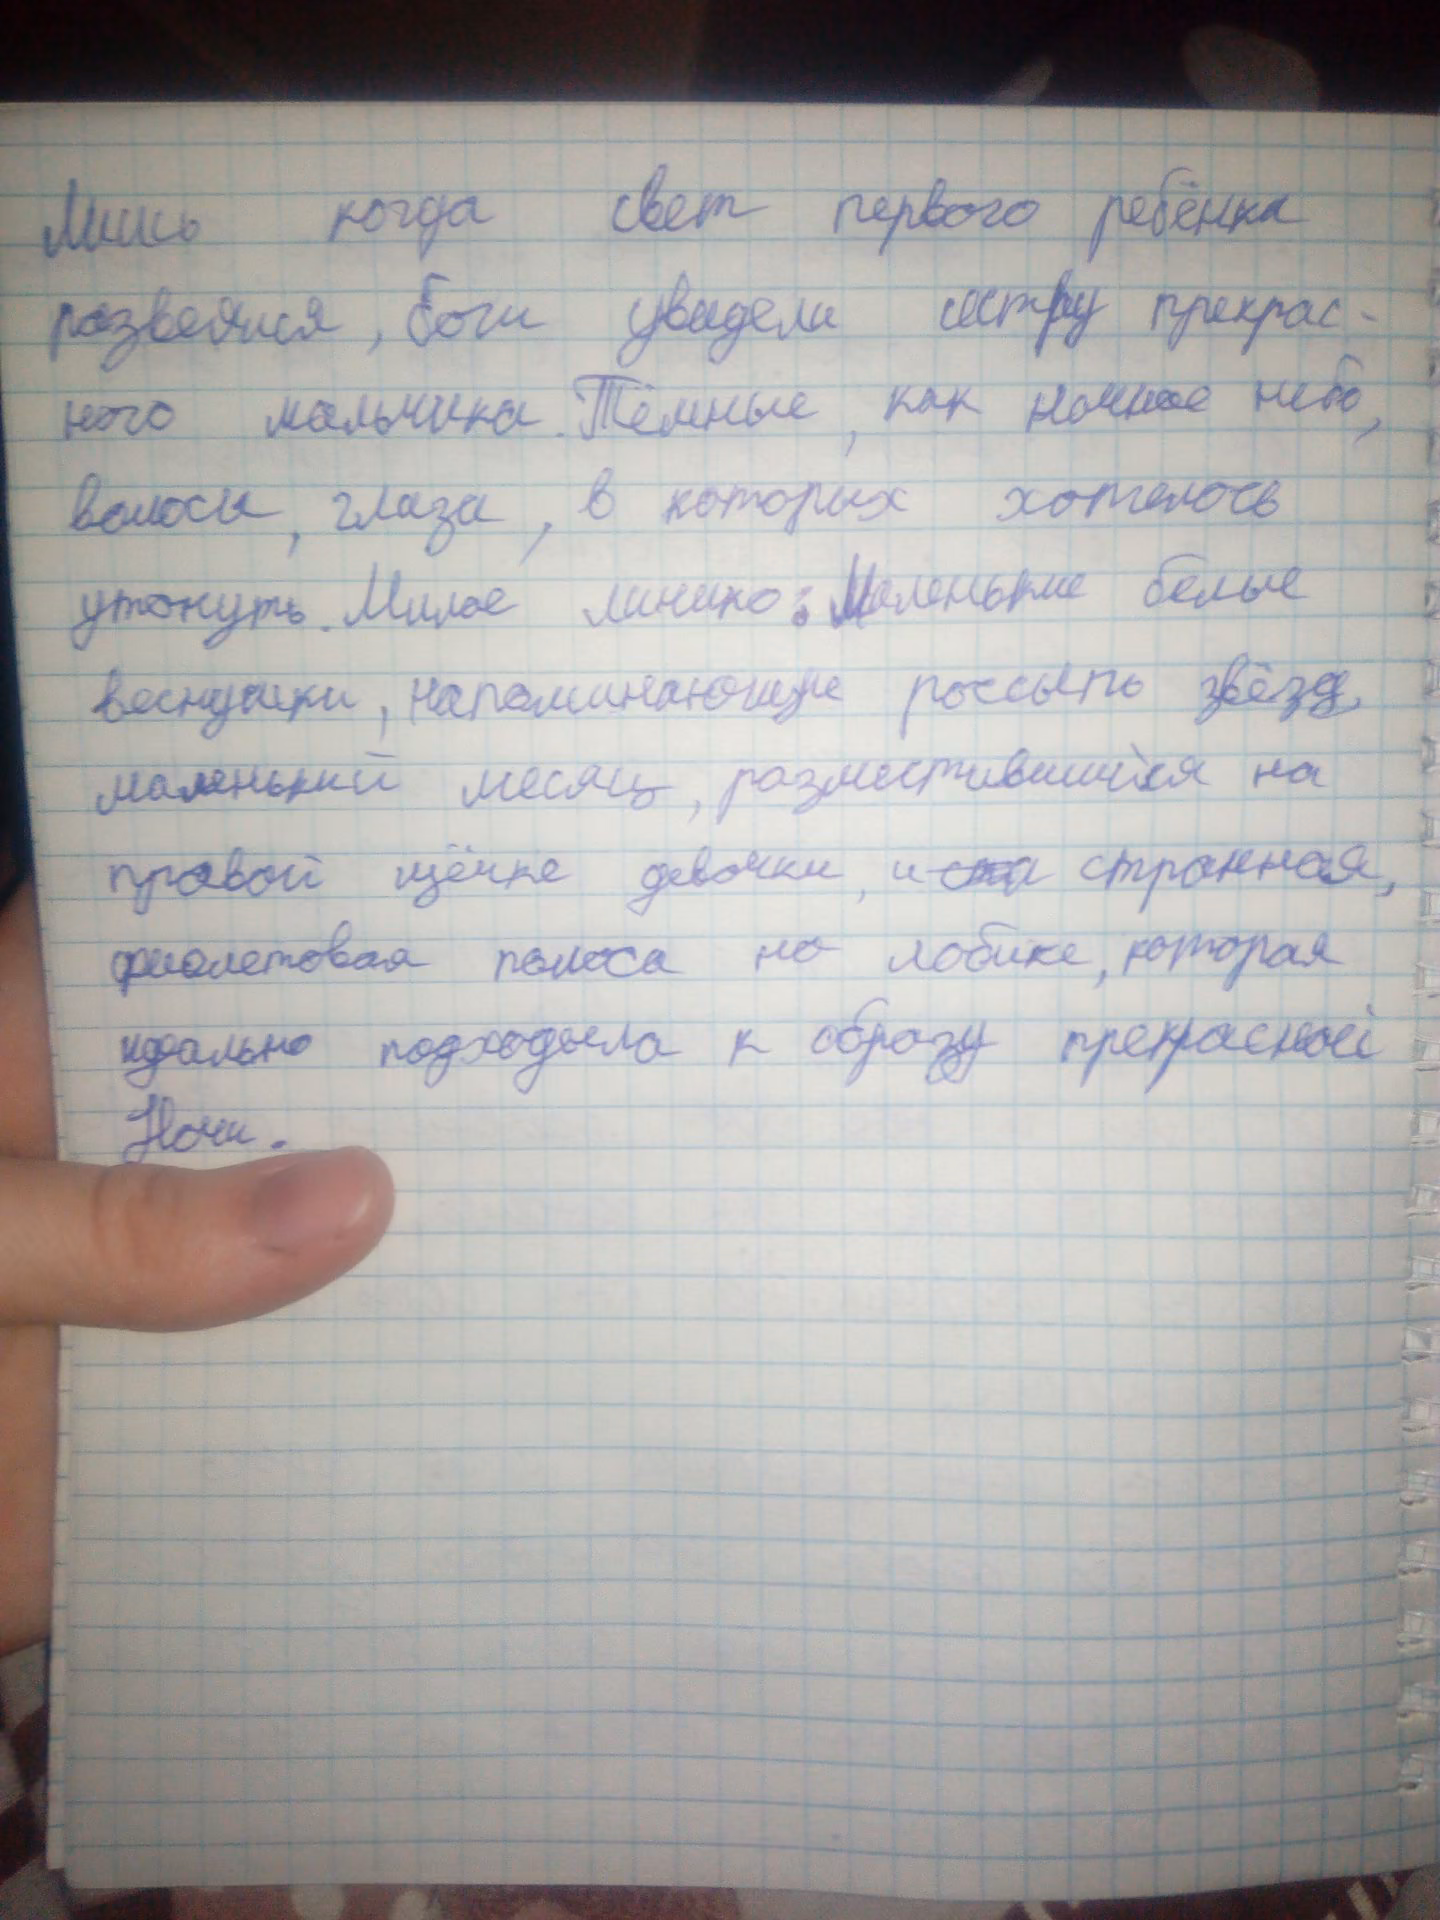 Лишь когда свет первого ребёнка
развеялся, боги увидели сестру прекрас-
ного мальчика. Тёмные, как ночное небо,
волосы, глаза, в которых хотелось
утонуть. Милое личико: Маленькие белые
веснушки, напоминающие россыпь звёзд,
маленький месяц, разместившийся на
правой щёчке девочки, и странная,
фиолетовая полоса на лобике, которая
идеально подходила к образу прекрасной
Ночи.